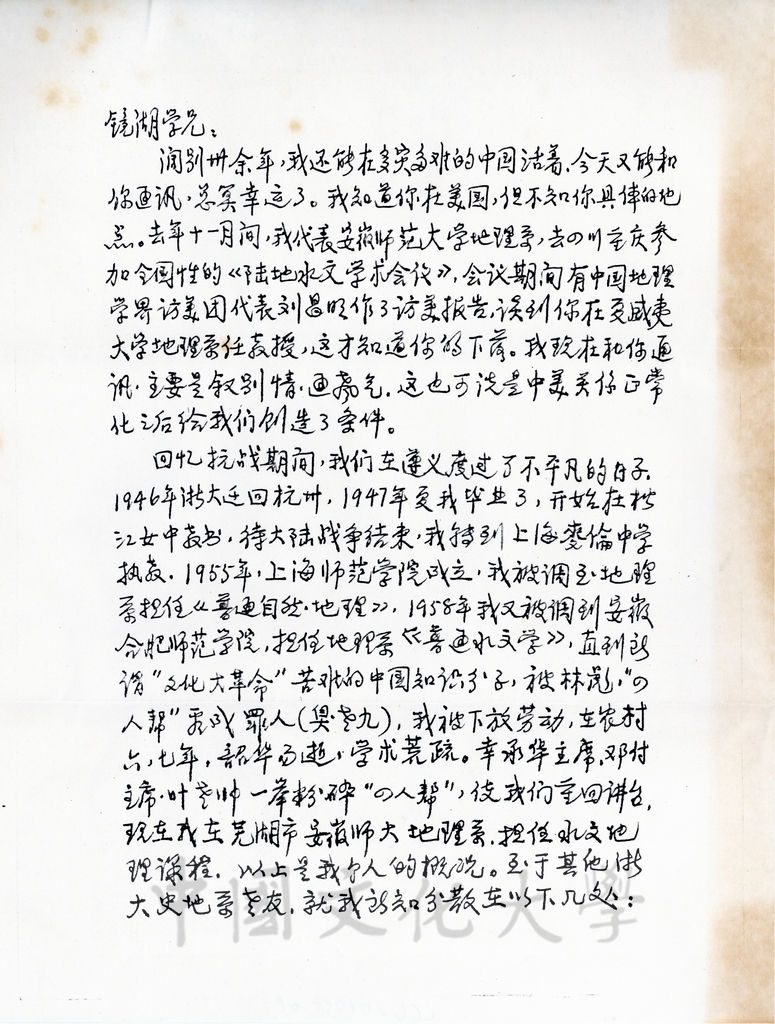 镜湖学兄：
阔别卅余年，我还能在多灾多难的中国活着，今天又能和
你通讯，总算幸运了。我知道你在美国，但不知你具体的地
点。去年十一月间，我代表安徽师范大学地理系，去四川重庆参
加全国性的《陆地水文学术会议》，会议期间有中国地理
学界访美团代表刘昌明作了访美报告，谈到你在夏威夷
大学地理系任教授，这才知道你的下落。我现在和你通
讯，主要是叙别情，通声气，这也可说是中美关系正常
化之后给我们创造了条件。
回忆抗战期间，我们在遵义度过了不平凡的日子，
1946年浙大迁回杭州，1947年夏我毕业了，开始在杭
江女中教书，待大陆战争结束，我转到上海麦伦中学
执教，1955年，上海师范学院成立，我被调至地理
系担任《普通自然地理》，1958年我又被调到安徽
合肥师范学院，担任地理系《普通水文学》，直到所
谓“文化大革命”苦难的中国知识分子，被林彪，“四
人帮”看成罪人（臭老九），我被下放劳动，在农村
六，七年，韶华易逝，学术荒疏。幸承华主席，邓付
主席，叶老帅一举粉碎“四人帮”，使我们重回讲台，
现在我在芜湖市安徽师大地理系，担任水文地
理课程，以上是我个人的概况。至于其他浙
大史地系老友，就我所知分散在以下几处：
中國文化大學